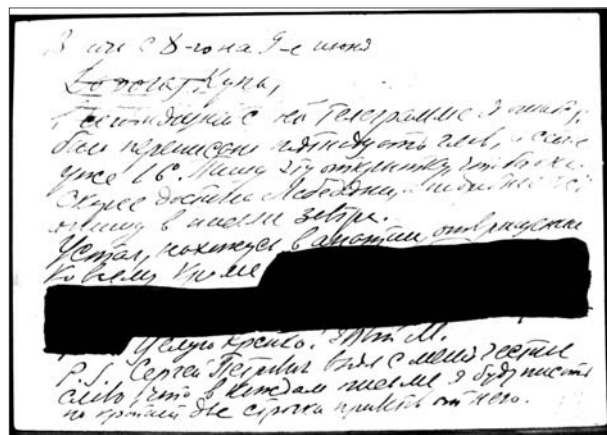 В ночь с 8-го на 9-е июня
Дорогая Купа,
на телеграмме я
было переписано пятнадцать глав, а сейчас
уже 16. Пишу эту открытку, чтобы она
скорее достигла Лебедяни, подробнее всё
опишу в письме завтра.
Устал, нахожусь в апатии, отвращении
ко всему, кроме
Целую крепко! Твой М.
P.S. Сергей Петрович взял с меня честное
слово, что в каждом письме я буду писать
по крайней две строчки приветы от него.